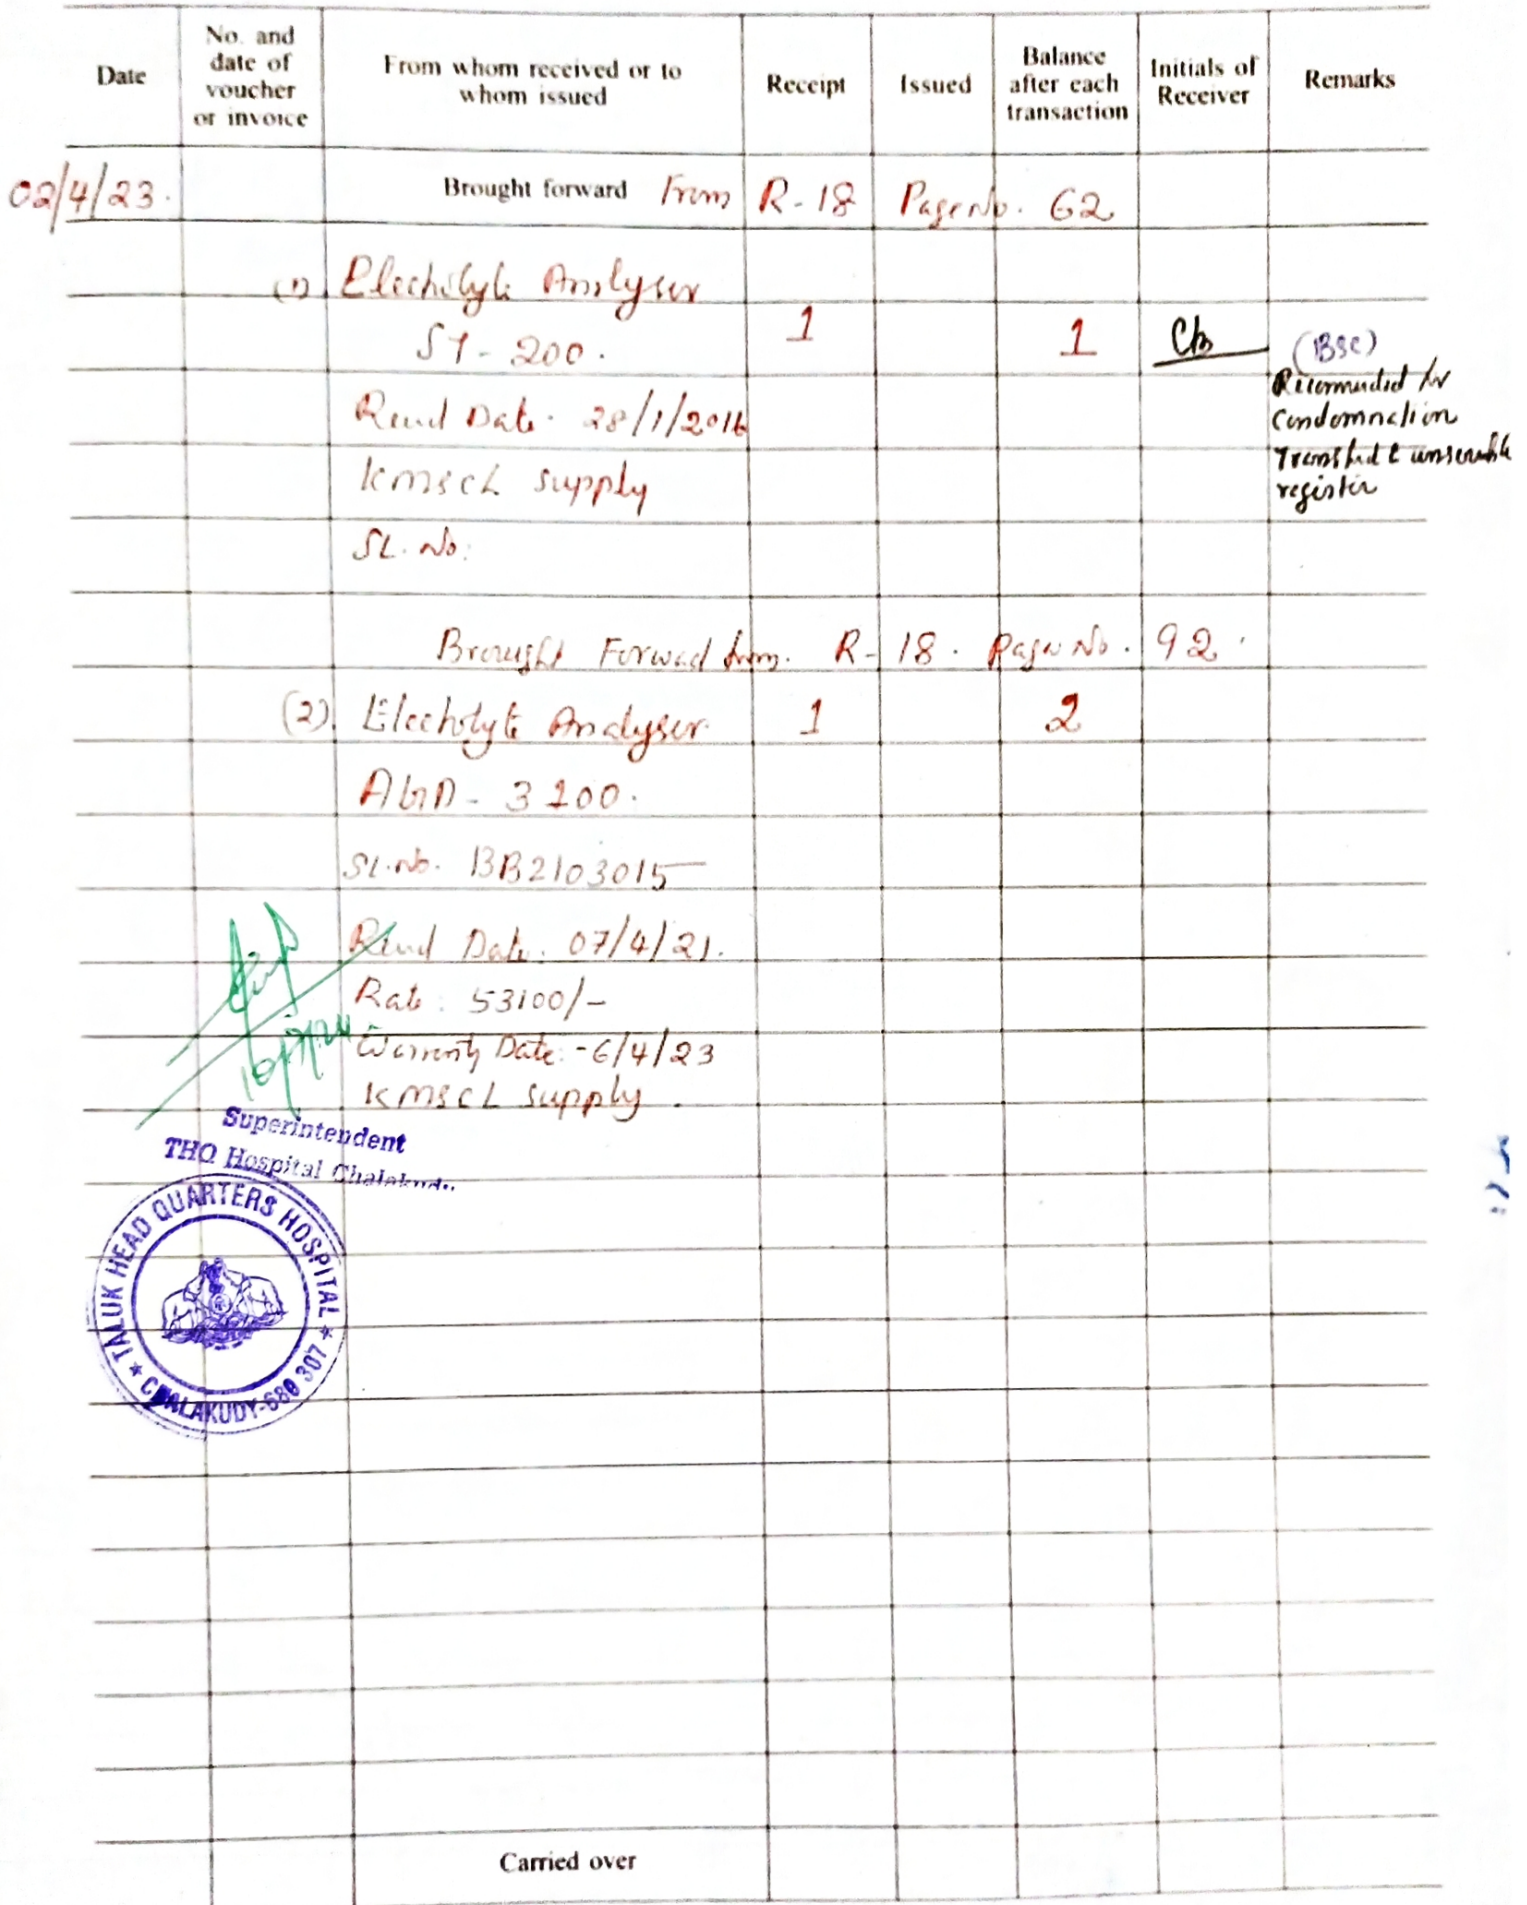 Date
No. and date of voucher or invoice
From whom received or to whom issued
Receipt
Issued
Balance after each transaction
Initials of Receiver
Remarks
02/4/23. Brought forward From R-18 Page No. 62
(1) Electrolyte Analyser
ST-200. 1 1 (BSC)
Recommended for
Condomnation
Recvd Date. 28/1/2016
KMSCL supply
register
SL. No:
Brought Forward from. R-18. Page No. 92.
(2). Electrolyte Analyser. 1 2
3100.
SL.No. BB2103015
Recvd Date. 07/4/21.
Rate: 53100/-
Warrenty Date:-6/4/23
KMSCL supply.
Superintendent
THQ Hospital Chalakudy
TALUK HEAD QUARTERS HOSPITAL
CHALAKUDY-680 307
Carried over